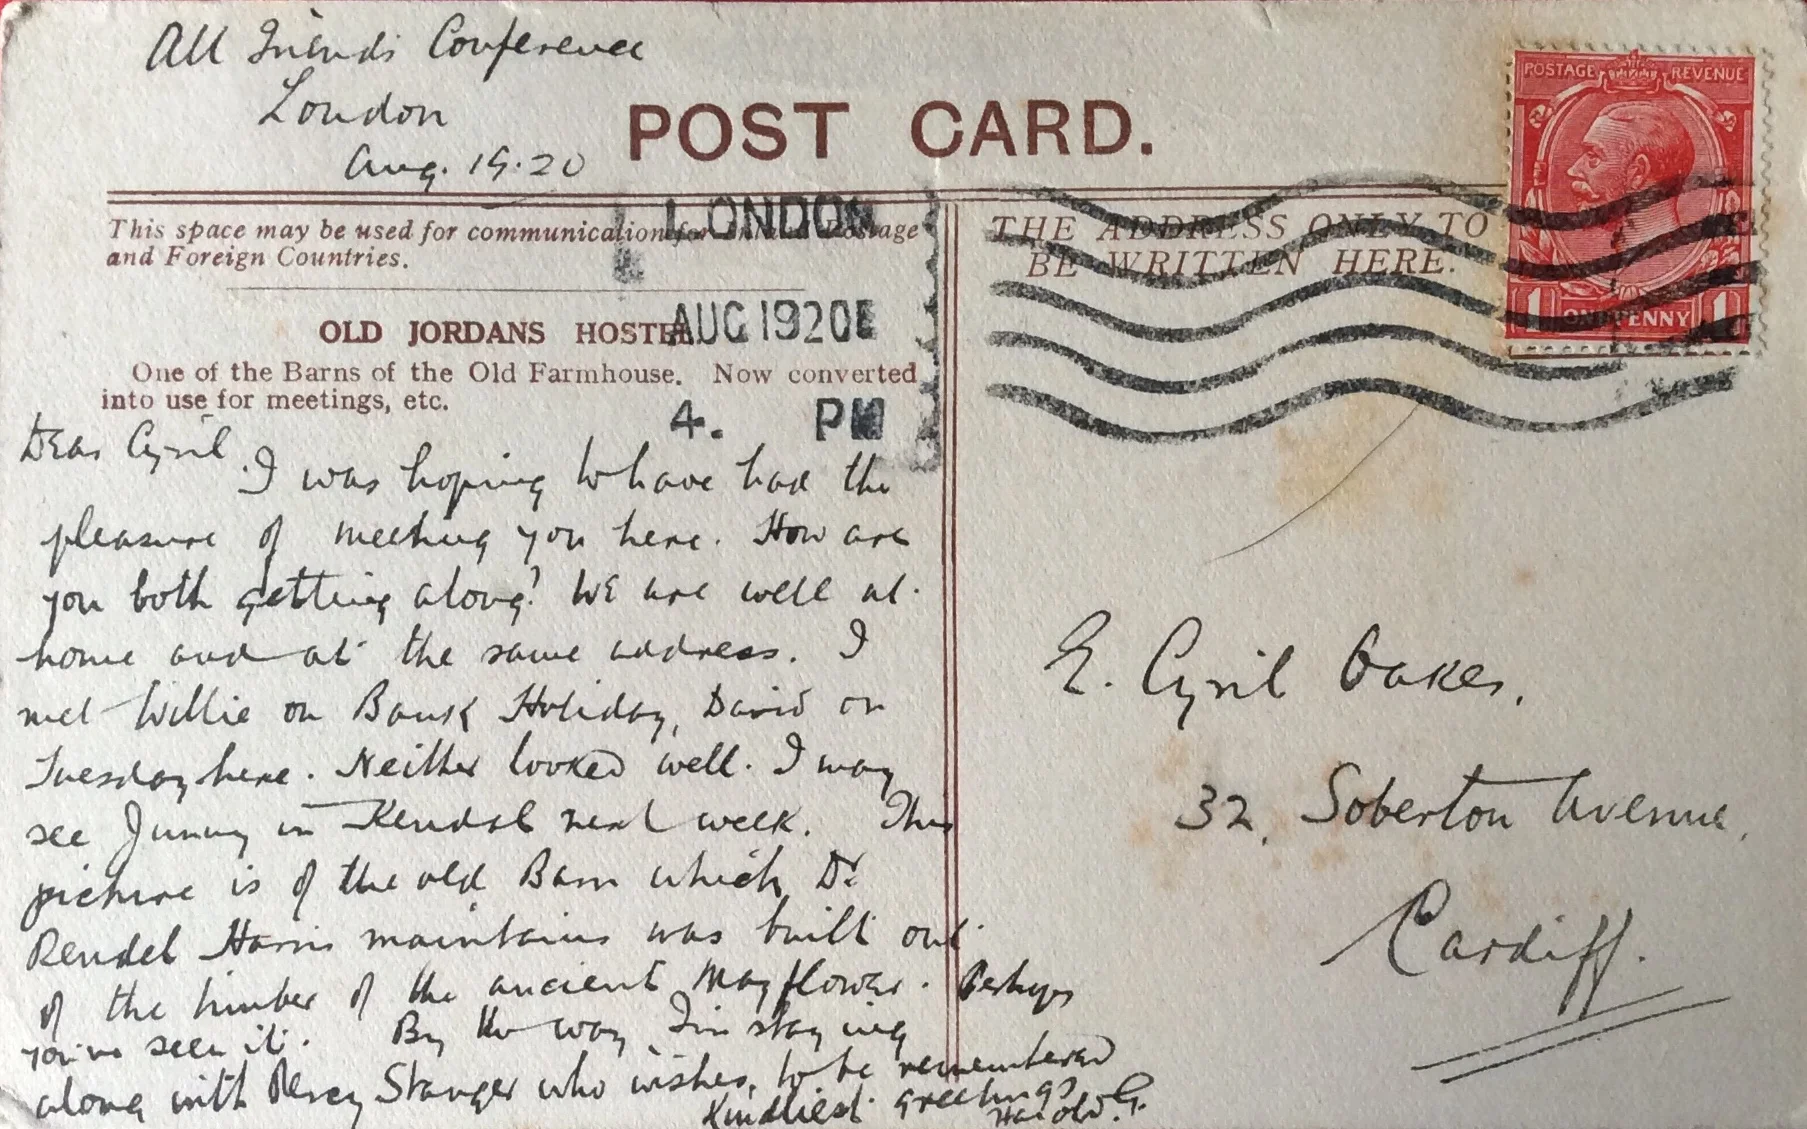 All Friends Conference
London
Aug. 19.20
POST CARD.
POSTAGE REVENUE
1 ONE PENNY 1
This space may be used for communication for Inland Postage
and Foreign Countries.
THE ADDRESS ONLY TO
BE WRITTEN HERE.
LONDON
AUG 1920E
4. PM
OLD JORDANS HOSTEL
One of the Barns of the Old Farmhouse. Now converted
into use for meetings, etc.
Dear Cyril.
I was hoping to have had the
pleasure of meeting you here. How are
you both getting along? We are well at
home and at the same address. I
met Willie on Bank Holiday, David on
Tuesday here. Neither looked well. I may
see Jimmy in Kendal next week. This
picture is of the old Barn which Dr
Rendel Harris maintains was built out
of the timber of the ancient Mayflower. Perhaps
you've seen it. By the way I'm staying
along with Percy Stanger who wishes to be remembered
Kindliest greetings
Harold. G.
E. Cyril Oakes,
32, Soberton Avenue,
Cardiff.